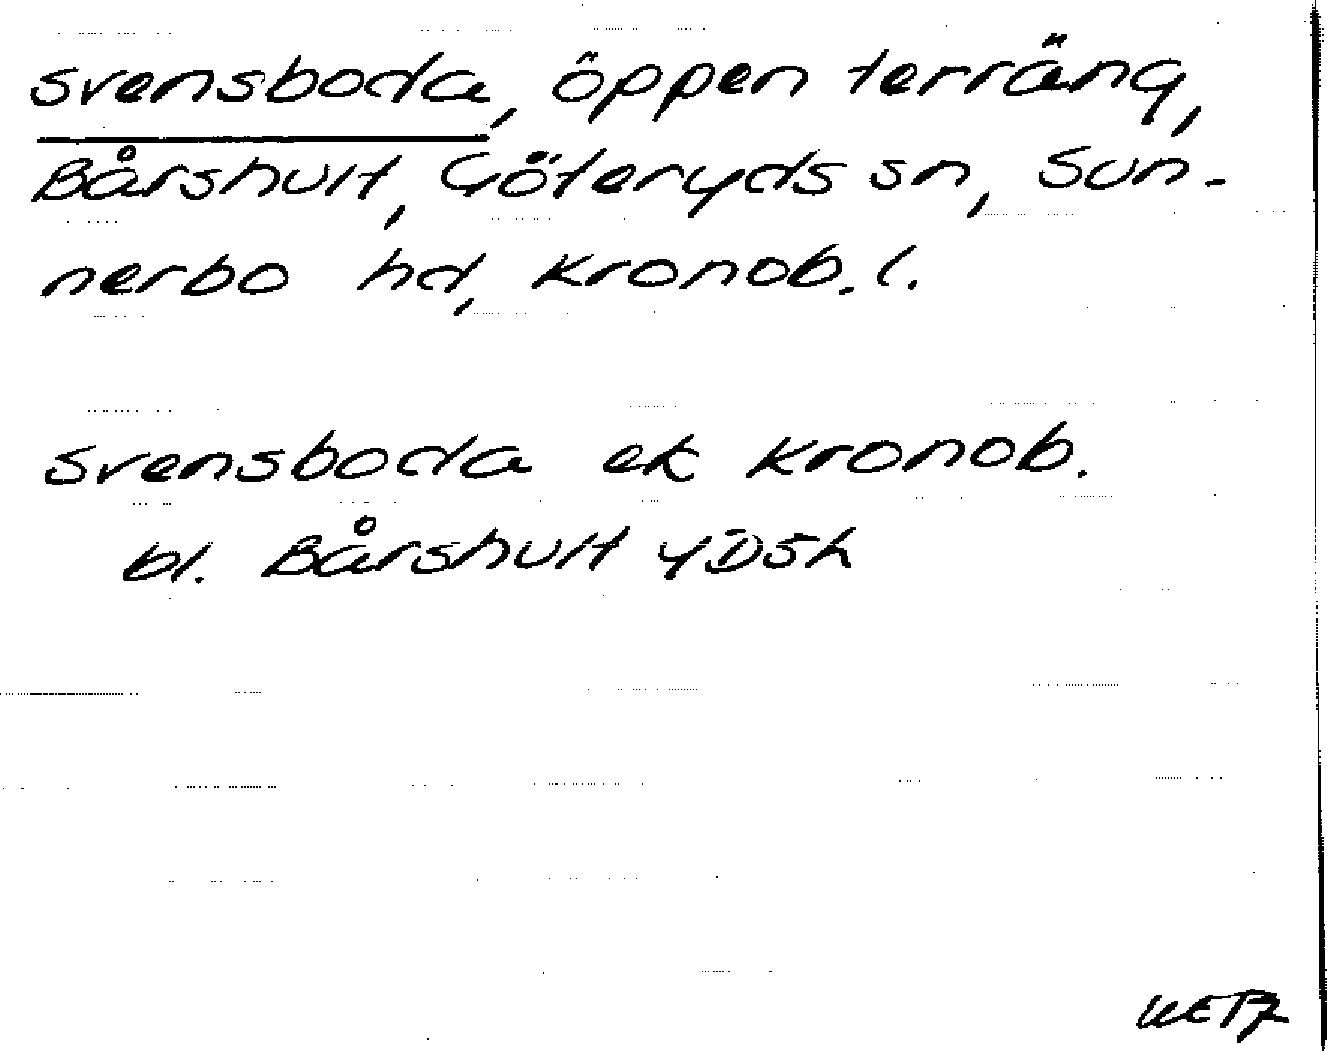 Svensboda, öppen terräng,
Bårshult, Göteryds sn, Sun-
nerbo hd, Kronob. l.
Svensboda ek Kronob.
bl. Bårshult